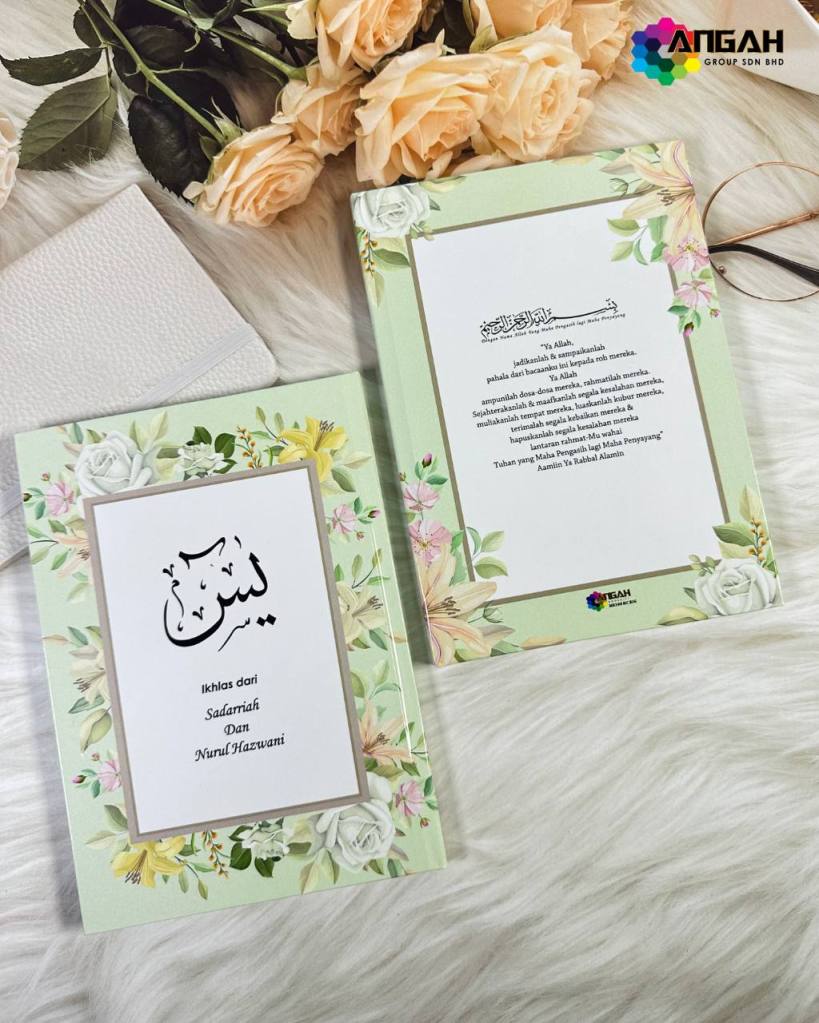 ANGAH
GROUP SDN BHD
بِسْمِ اللهِ الرَّحْمٰنِ الرَّحِيْمِ
Dengan Nama Allah Yang Maha Pengasih lagi Maha Penyayang
"Ya Allah,
jadikanlah & sampaikanlah
pahala dari bacaanku ini kepada roh mereka.
Ya Allah
ampunilah dosa-dosa mereka, rahmatilah mereka.
Sejahterakanlah & maafkanlah segala kesalahan mereka,
muliakanlah tempat mereka, luaskanlah kubur mereka,
terimalah segala kebaikan mereka &
hapuskanlah segala kesalahan mereka
lantaran rahmat-Mu wahai
Tuhan yang Maha Pengasih lagi Maha Penyayang"
Aamiin Ya Rabbal Alamin
ANGAH
يس
Ikhlas dari
Sadarriah
Dan
Nurul Hazwani